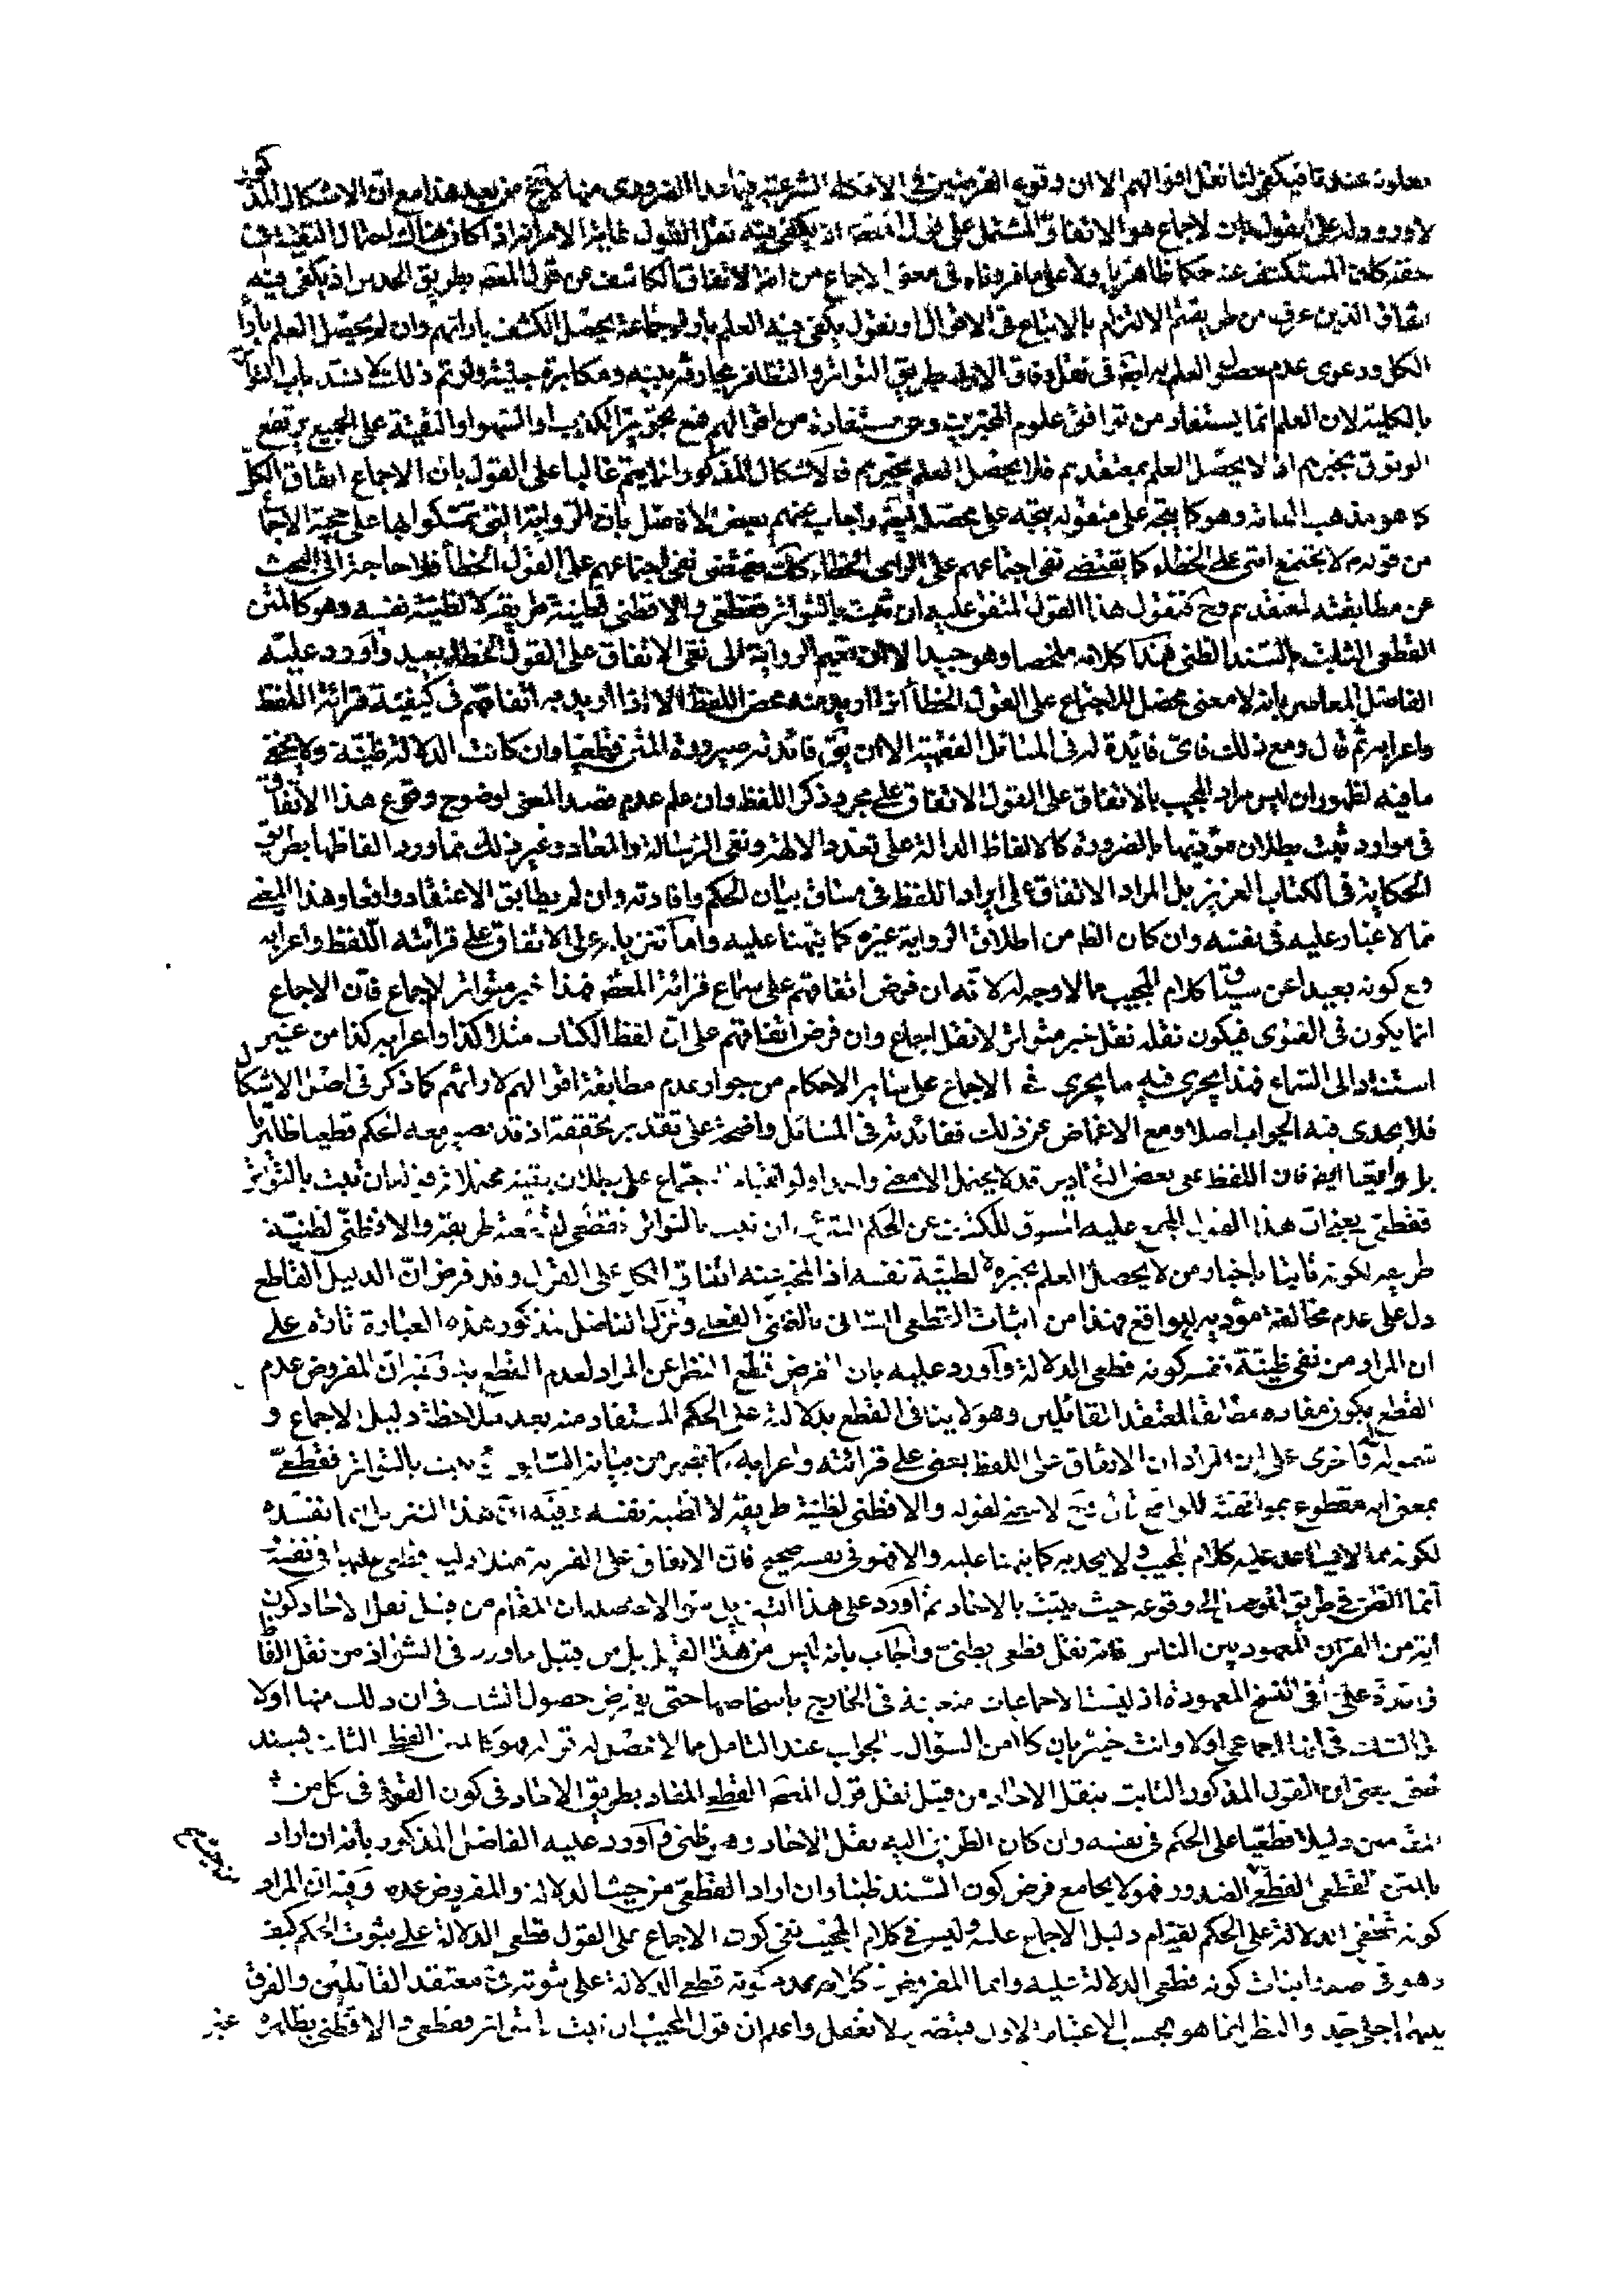 معلومة عندنا فيكفى لنا نقل اقوالهم الا ان وقوع الفرضين فى الاحكام الشرعية فيما عدا الضرورى منها لا يخ من بعد هذا مع ان الاشكال المذكور
لا ورود له على القول بان الاجماع هو الاتفاق المشتمل على قول المعصوم اذ يكفى فيه نقل القول غاية الامر انه اذا كان هناك احتمال التقية فى
حقه كان المستكشف عنه حكما ظاهريا ولا على ما قررناه فى معنى الاجماع من انه الاتفاق الكاشف عن قول المعصوم بطريق الحدس اذ يكفى فيه
اتفاق الذين عرف من طريقتهم الالتزام بالاتباع فى الاقوال او نقول يكفى فيه العلم باراء جماعة يحصل الكشف بارائهم وان لم يحصل العلم باراء
الكل ودعوى عدم حصول العلم به ايضا فى نقل وفاق الاراء بطريق التواتر والتظافر مجازفة بينة ومكابرة جلية ولو تم ذلك لانسد باب التواتر
بالكلية لان العلم انما يستفاد من توافق علوم المخبرين وهى مستفادة من اقوالهم فمع تجويز الكذب او السهو او التقية على الجميع يرتفع
الوثوق بخبرهم اذ لا يحصل العلم بمعتقدهم فلا يحصل العلم بخبرهم فالاشكال المذكور انما يتم غالبا على القول بان الاجماع اتفاق الكل
كما هو مذهب العامة وهو كما يتجه على منقوله يتجه على محصله ايضا واجاب عنهم بعض الافاضل بان الرواية التى تمسكوا بها على حجية الاجماع
من قوله لا يجتمع امتى على الخطاء كما يقتضى نفى اجتماعهم على الراى الخطاء كذلك يقتضى نفى اجتماعهم على القول الخطأ فلا حاجة الى البحث
عن مطابقته لمعتقدهم وح فنقول هذا القول المتفق عليه ان ثبت بالتواتر فقطعى والا فظنى لظنية طريقه لا لظنية نفسه وهو كالمتن
القطعى الثابت بالسند الظنى هذا كلامه ملخصا وهو جيد الا ان تعميم الرواية الى نفى الاتفاق على القول الخطاء بعيد واورد عليه
الفاضل المعاصر بانه لا معنى محصل للاجتماع على القول الخطأ اذا اريد منه محض اللفظ الا اذا اريد به اتفاقهم فى كيفية قرائة اللفظ
واعرابه ثم قال ومع ذلك فاى فائدة له فى المسائل الفقهية الا ان يق فائدته صيرورة المتن قطعيا وان كانت الدلالة ظنية ولا يخفى
ما فيه لظهور ان ليس مراد المجيب بالاتفاق على القول الاتفاق على مجرد ذكر اللفظ وان علم عدم قصد المعنى لوضوح وقوع هذا الاتفاق
فى موارد ثبت بطلان مؤديها بالضرورة كالالفاظ الدالة على تعدد الالهة ونفى الرسالة والمعاد وغير ذلك مما ورد الفاظها بطريق
الحكاية فى الكتاب العزيز بل المراد الاتفاق على ايراد اللفظ فى مساق بيان الحكم وافادته وان لم يطابق الاعتقاد واقعا وهذا المعنى
مما لا غبار عليه فى نفسه وان كان الظ من اطلاق الرواية غيره كما نبهنا عليه واما تنزيله على الاتفاق على قرائة اللفظ واعرابه
مع كونه بعيدا عن سياق كلام المجيب مما لا وجه له لانه ان فرض اتفاقهم على سماع قرائة المعصوم فهذا خبر متواتر لا اجماع فان الاجماع
انما يكون فى الفتوى فيكون نقله نقل خبر متواتر لا نقل اجماع وان فرض اتفاقهم على ان لفظ الكتاب مثلا كذا واعرابه كذا من غير
استناد الى السماع فهذا يجرى فيه ما يجرى فى الاجماع على ساير الاحكام من جواز عدم مطابقة اقوالهم لارائهم كما ذكر فى اصل الاشكال
فلا يجدى فيه الجواب اصلا ومع الاغماض عن ذلك ففائدته فى المسائل واضحة على تقدير تحققه اذ قد يصير معه الحكم قطعيا ظاهريا
بل واقعيا ايضا فان اللفظ على بعض التقادير قد لا يحتمل الا معنى واحدا ولو لقيام الاجماع على بطلان بقية محتملاته قوله ان ثبت بالتواتر
فقطعى يعنى ان هذا القول المجمع عليه المسوق للكشف عن الحكم الشرعى ان ثبت بالتواتر فقطعى لقطعية طريقه والا فظنى لظنية
طريقه لكونه ثابتا باخبار من لا يحصل العلم بخبره لا لظنية نفسه اذ المخبر عنه اتفاق الكل على القول وقد فرض ان الدليل القاطع
دل على عدم مخالفة مؤديه للواقع فهذا من اثبات القطعى الشانى بالظنى الفعلى ونزل الفاضل المذكور هذه العبارة تارة على
ان المراد من نفى ظنية نفسه كونه قطعى الدلالة واورد عليه بان الفرض قطع النظر عن المراد لعدم القطع به وفيه ان المفروض عدم
القطع بكون مفاده مطابقا لمعتقد القائلين وهو لا ينافى القطع بدلالته على الحكم المستفاد منه بعد ملاحظة دليل الاجماع و
شموله له واخرى على ان المراد ان الاتفاق على اللفظ يعنى على قرائته واعرابه كما يظهر من بيانه السابق ان ثبت بالتواتر فقطعى
بمعنى انه مقطوع بموافقته للواقع ثم قال وح لا معنى لقوله والا فظنى لظنية طريقه لا لظنية نفسه وفيه ان هذا التنزيل مع انفساده
لكونه مما لا يساعد عليه كلام المجيب ولا يجديه كما نبهنا عليه والا فهو فى نفسه صحيح فان الاتفاق على القول دليل قطعى عليها فى نفسه
انما الظن فى طريق الموصل الى وقوعه حيث يثبت بالاحاد ثم اورد على هذا التنزيل سؤالا حاصله ان المقام من قبيل نقل الاحاد كون
اية من القران المعهود بين الناس فانه نقل قطعى بظنى واجاب بانه ليس من هذا القبيل بل من قبيل ما ورد فى الشواذ من نقل الفاظ
زائدة على ما فى النسخ المعهودة اذ ليست الاجماعيات متعينة فى الخارج باشخاصها حتى يفرض حصول الشك فى ان ذلك منها اولا
بل الشك فى انه اجماعى اولا وانت خبير بان كلا من السؤال والجواب عند التامل مما لا محصل له قوله فهو كالمتن القطعى الثابت بسند
ظنى يعنى ان القول المذكور الثابت بنقل الاحاد من قبيل نقل قول المعصوم القطعى المفاد بطريق الاحاد فى كون القول فى كل من
المقامين دليلا قطعيا على الحكم فى نفسه وان كان الطريق اليه نقل الاحاد وهو ظنى واورد عليه الفاضل المذكور بانه ان اراد
بالمتن القطعى القطعى الصدور فهو لا يجامع فرض كون السند ظنيا وان اراد القطعى من حيث الدلالة والمفروض عدمه وفيه ان المراد
كونه قطعى الدلالة على الحكم لقيام دليل الاجماع عليه وليس فى كلام المجيب نفى كون الاجماع على القول قطعى الدلالة على ثبوت الحكم كيف
وهو فى صدد اثبات كونه قطعى الدلالة عليه وانما المفروض فى كلامه عدم كونه قطعى الدلالة على ثبوته فى معتقد القائلين والفرق
بينهما جلى جدا والنظر انما هو بحسب الاعتبار الاول فتبصر ولا تغفل واعلم ان قول المجيب ان ثبت بالتواتر فقطعى والا فظنى بظاهره غير